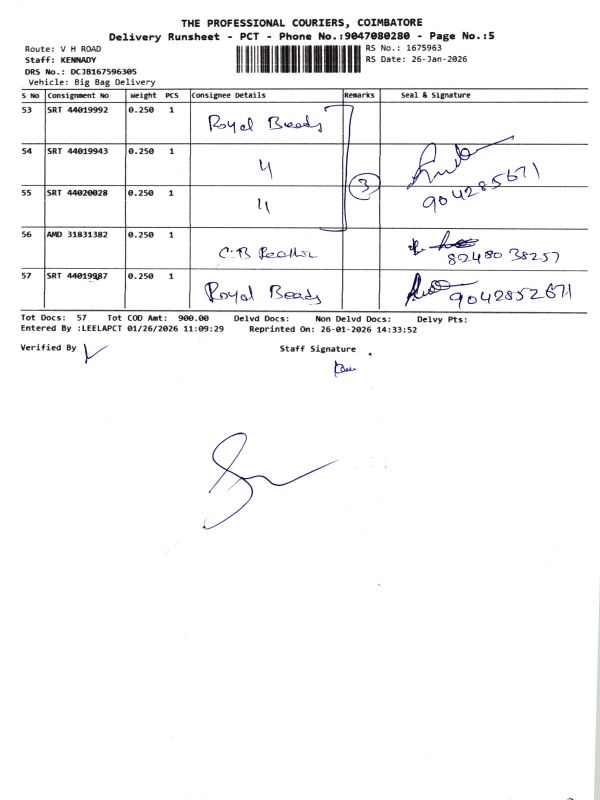 THE PROFESSIONAL COURIERS, COIMBATORE
Delivery Runsheet - PCT - Phone No.:9047080280 - Page No.:5
Route: V H ROAD RS No.: 1675963
Staff: KENNADY RS Date: 26-Jan-2026
DRS No.: DCJB167596305
Vehicle: Big Bag Delivery
S No Consignment No Weight PCS Consignee Details Remarks Seal & Signature
53 SRT 44019992 0.250 1 Royal Beads
54 SRT 44019943 0.250 1 4
55 SRT 44020028 0.250 1 4 3 904285671
56 AMD 31831382 0.250 1 C.B 82480 38257
57 SRT 44019987 0.250 1 Royal Beads 9042852671
Tot Docs: 57 Tot COD Amt: 900.00 Delvd Docs: Non Delvd Docs: Delvy Pts:
Entered By :LEELAPCT 01/26/2026 11:09:29 Reprinted On: 26-01-2026 14:33:52
Verified By Staff Signature